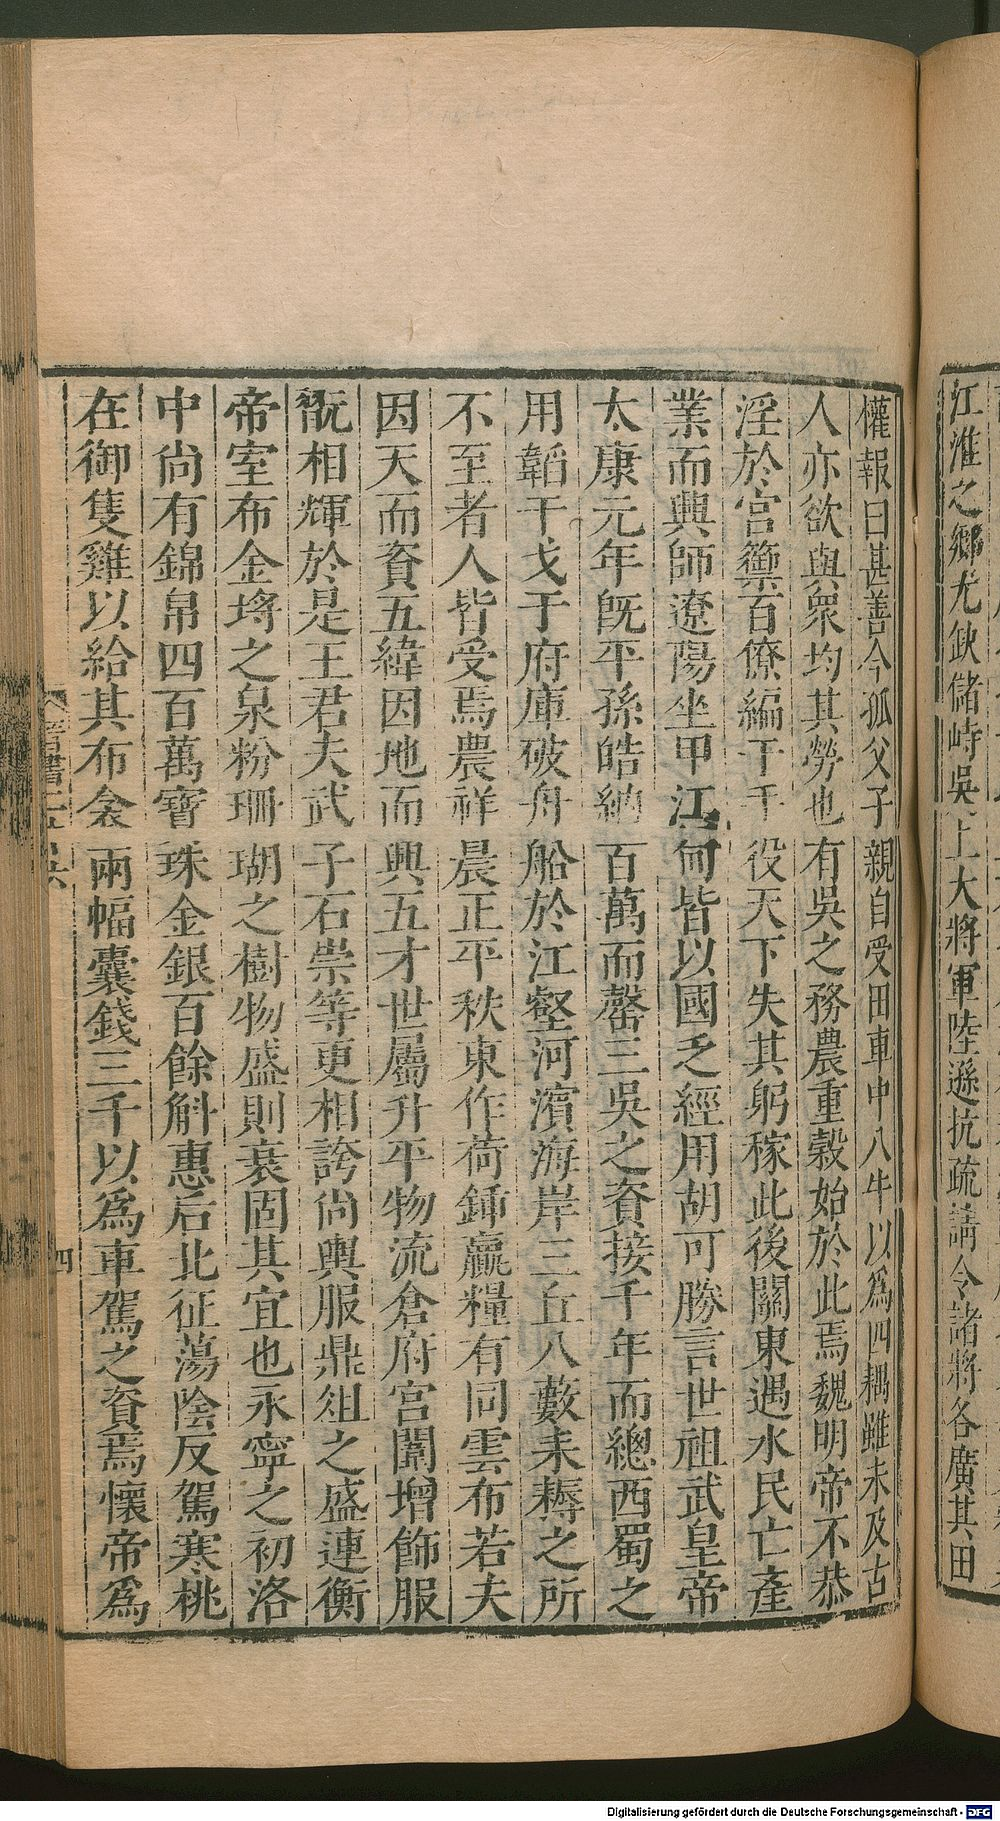 江淮之鄉尤缺儲峙吳上大將軍陸遜抗疏請令諸將各廣其田
權報曰甚善今孤父子親自受田車中八牛以爲四耦雖未及古
人亦欲與衆均其勞也有吳之務農重穀始於此焉魏明帝不恭
淫於宮籞百僚編于手役天下失其躬稼此後關東遇水民亡產
業而興師遼陽坐甲江甸皆以國乏經用胡可勝言世祖武皇帝
太康元年旣平孫皓納百萬而罄三吳之資接千年而總西蜀之
用韜干戈于府庫破舟船於江壑河濱海岸三丘八藪耒耨之所
不至者人皆受焉農祥晨正平秩東作荷鍤贏糧有同雲布若夫
因天而資五緯因地而興五才世屬升平物流倉府宮闈增飾服
翫相輝於是王君夫武子石崇等更相誇尚輿服鼎俎之盛連衡
帝室布金埒之泉粉珊瑚之樹物盛則衰固其宜也永寧之初洛
中尚有錦帛四百萬寶珠金銀百餘斛惠后北征蕩陰反駕寒桃
在御隻雞以給其布衾兩幅囊錢三千以爲車駕之資焉懷帝爲
四
Digitalisierung gefördert durch die Deutsche Forschungsgemeinschaft - DFG